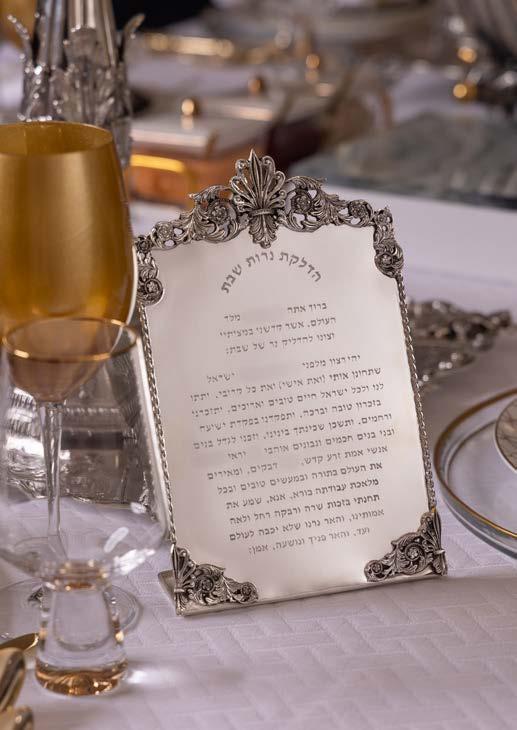 הדלקת נרות שבת
ברוך אתה מלך
העולם, אשר קדשנו במצותיו
וצונו להדליק נר של שבת:
יהי רצון מלפני ישראל
שתחונן אותי (ואת אישי) ואת כל קרובי, ותתן
לנו ולכל ישראל חיים טובים וארוכים, ותזכרנו
בזכרון טובה וברכה, ותפקדנו בפקדת ישועה
ורחמים, ותשכן שכינתך בינינו, וזכנו לגדל בנים
ובני בנים חכמים ונבונים אוהבי יראי
אנשי אמת זרע קדש, דבקים, ומאירים
את העולם בתורה ובמעשים טובים ובכל
מלאכת עבודתה בורא, אנא, שמע את
תחנתי בזכות שרה ורבקה רחל ולאה
אמותינו, והאר נרנו שלא יכבה לעולם
ועד, והאר פניך ונושעה, אמן: